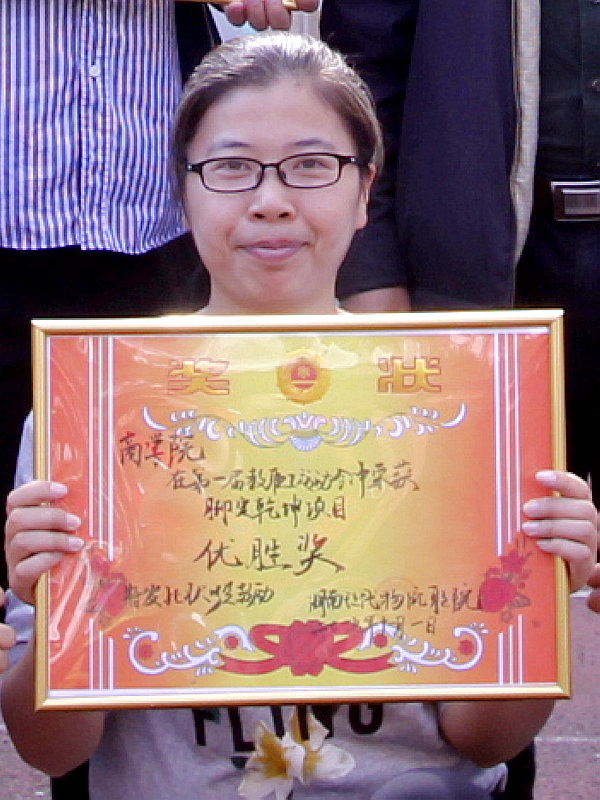 奖 状
商学院
在第一届教职工运动会中荣获
脚定乾坤项目
优胜奖
特发此状 以资鼓励
湖南现代物流职院
月一日